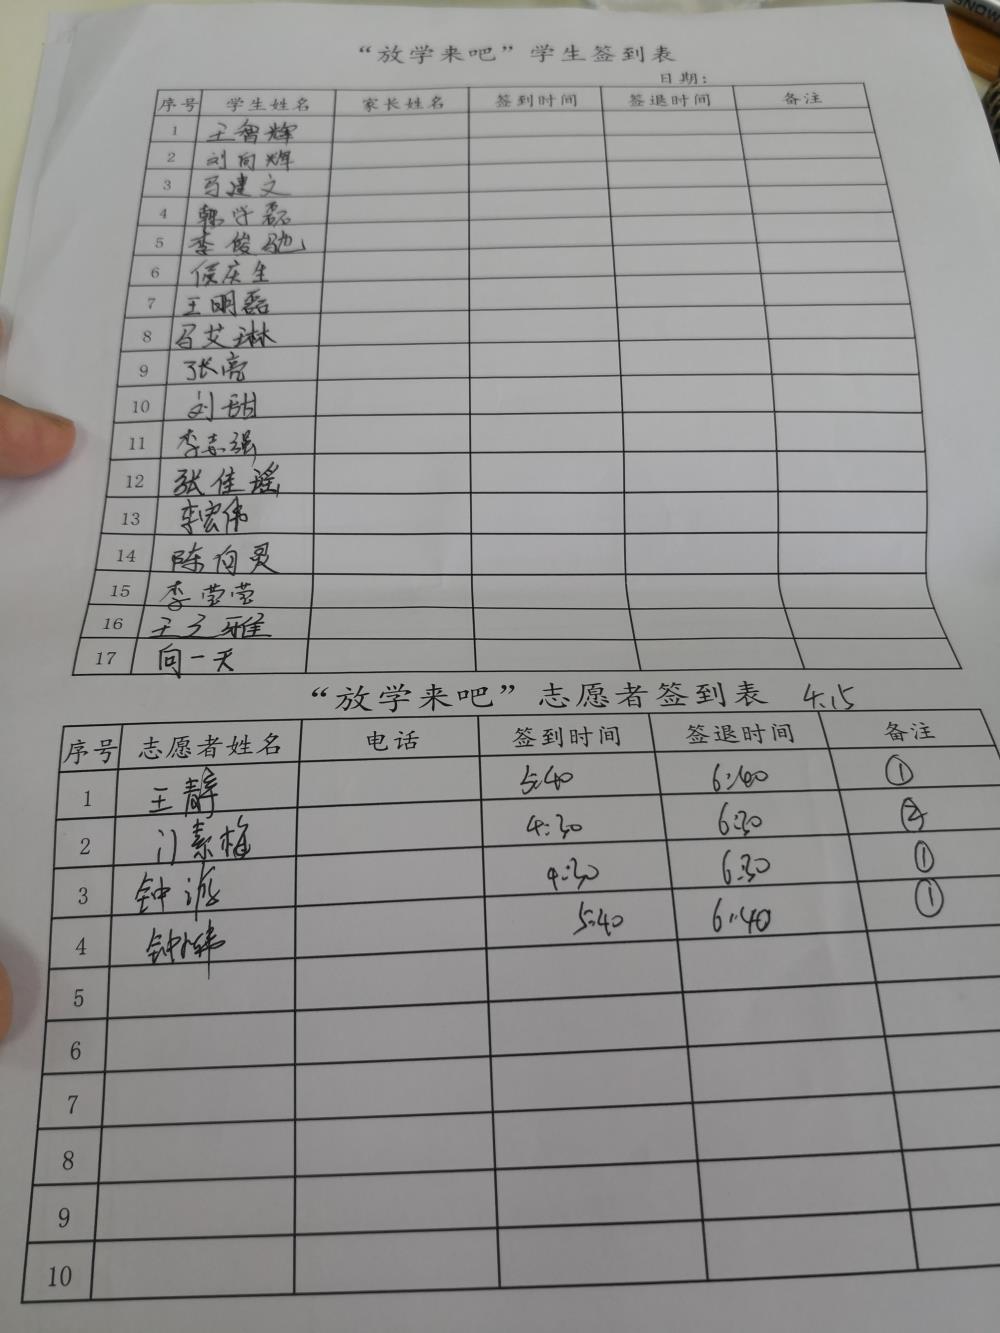 “放学来吧”学生签到表
日期：
序号 学生姓名 家长姓名 签到时间 签退时间 备注
1 王智辉
2 刘向辉
3 马建文
4 韩学磊
5 李俊驰
6 侯庆生
7 王明磊
8 马艾琳
9 张亮
10 刘甜
11 李志强
12 张佳瑶
13 李宏伟
14 陈向灵
15 李莹莹
16 王文雅
17 向一天
“放学来吧”志愿者签到表 4.15
序号 志愿者姓名 电话 签到时间 签退时间 备注
1 王静 5:40 6:40 ①
2 门素梅 4:30 6:30 ②
3 钟游 4:30 6:30 ①
4 5:40 6:40 ①
5
6
7
8
9
10